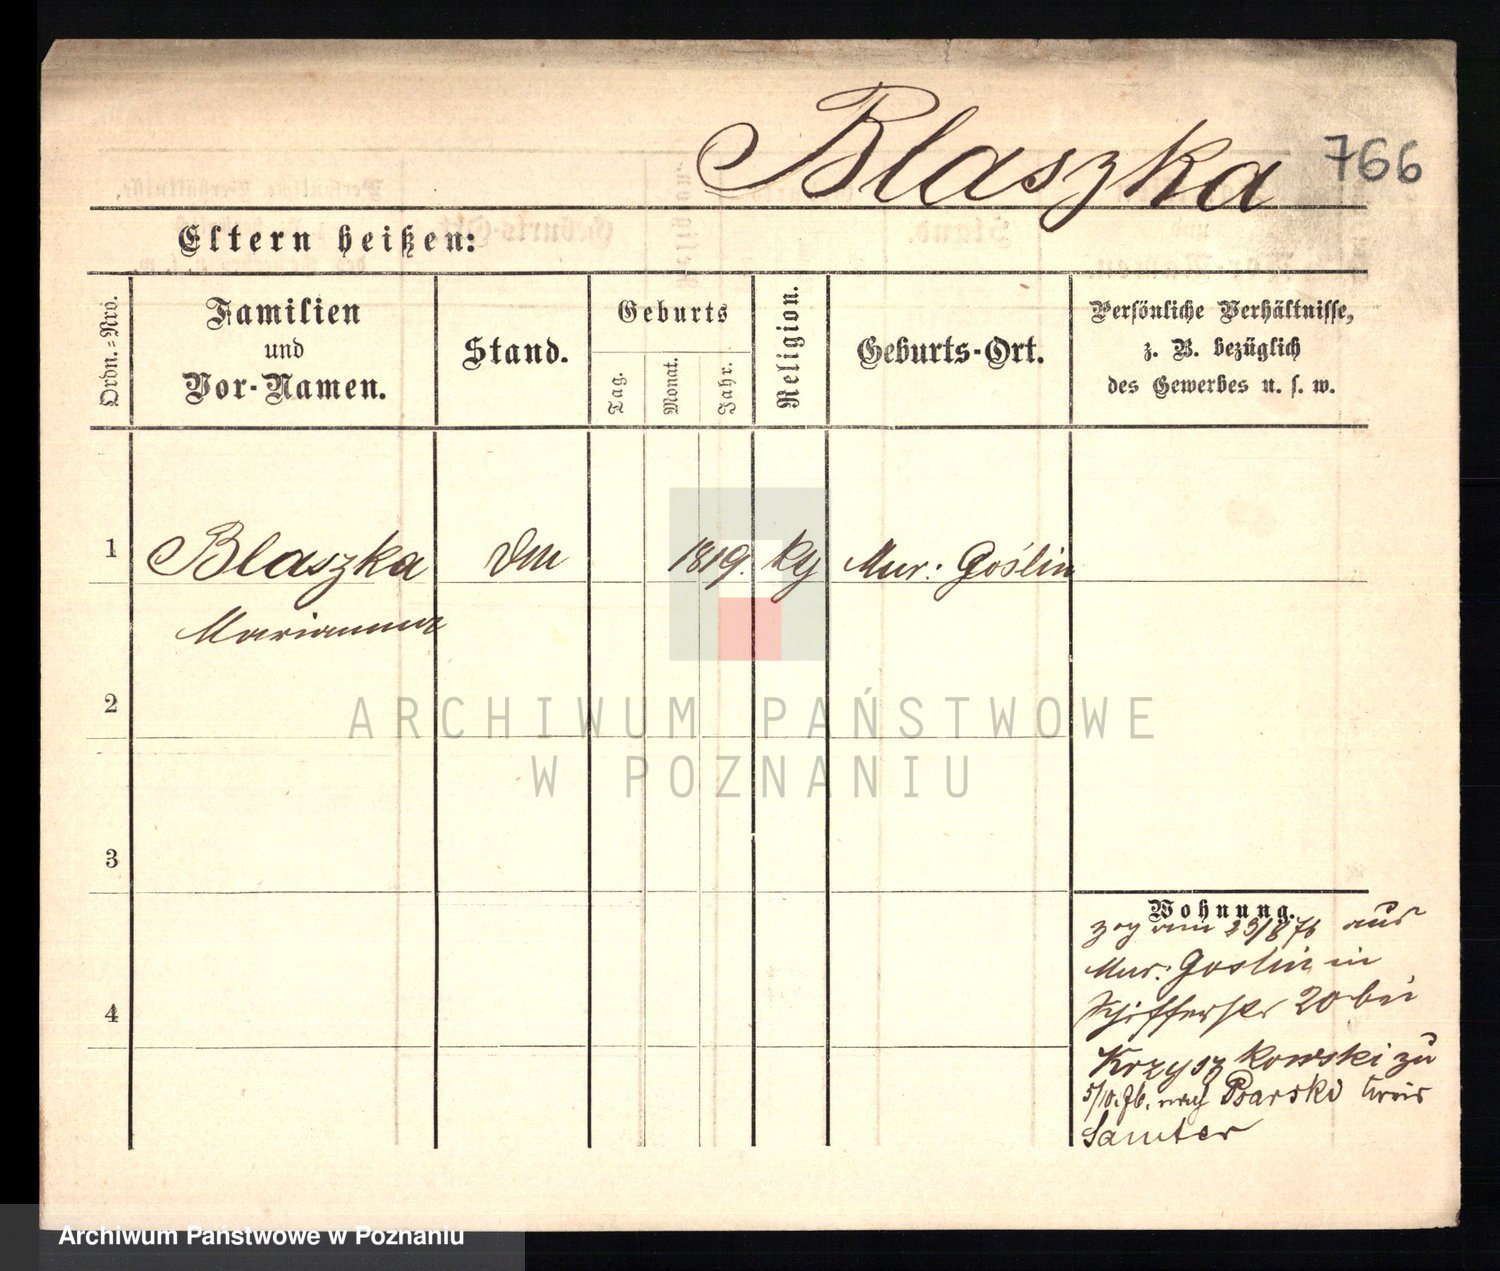 Blaszka 766
Eltern heißen:
Ordn.-Nro.
Familien
und
Vor-Namen.
Stand.
Geburts
Tag.
Monat.
Jahr.
Religion.
Geburts-Ort.
Persönliche Verhältnisse,
z. B. bezüglich
des Gewerbes u. s. w.
1 Blaszka 1819. Mur: Goślin
Marianna
2
3
4
Wohnung.
zog am 23/8 76 aus
Mur: Goslin in
Schifferstr 20 bei
Krzyszkowski zu
5/10. 76. nach Psarski Kreis
Samter
ARCHIWUM PAŃSTWOWE
W POZNANIU
Archiwum Państwowe w Poznaniu